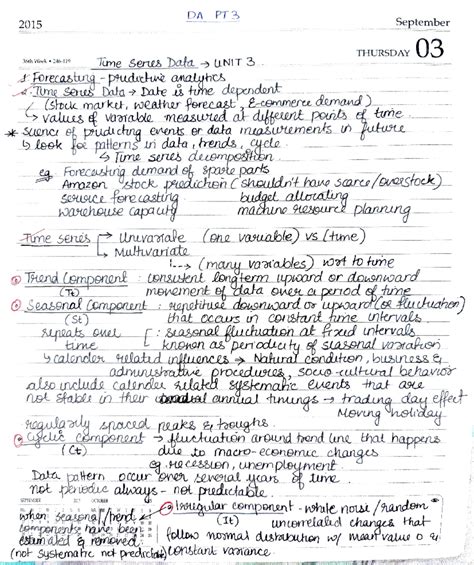 DA PT 3
2015 September
36th Week • 246-119 THURSDAY 03
Time Series Data → UNIT 3
Forecasting - predictive analytics
Time Series Data → Date is time dependent
(stock market, weather forecast, E-commerce demand)
↳ values of variable measured at different points of time
* Science of predicting events or data measurements in future
↳ look for patterns in data, trends, cycle
↳ Time series decomposition
eg Forecasting demand of spare parts
Amazon stock prediction (shouldn't have scarce/overstock)
service forecasting budget allocating
warehouse capacity machine resource planning
Time series → Univariate (one variable) vs (time)
→ Multivariate
(many variables) wrt to time
Trend Component : consistent longterm upward or downward
(Tt) movement of data over a period of time
Seasonal Component : repetitive downward or upward (or fluctuation)
(St) that occurs in constant time intervals
repeats over : seasonal fluctuation at fixed intervals
time known as periodicity of seasonal variation
↳ calender related influences → Natural condition, business &
administrative procedures, socio-cultural behavior
also include calender related systematic events that are
not stable in their annual timings → trading day effect
Moving holiday
regularly spaced peaks & troughs.
Cyclic component → fluctuation around trend line that happens
(Ct) due to macro-economic changes
eg. recession, unemployment
Data pattern occur over several years of time
not periodic always - not predictable
SEPTEMBER 2015 OCTOBER
Irregular component - white noise/random
when seasonal/trend & (It) uncorrelated changes that
components have been follow normal distribution w/ mean value 0 &
estimated & removed
(not systematic not predictable) constant variance.